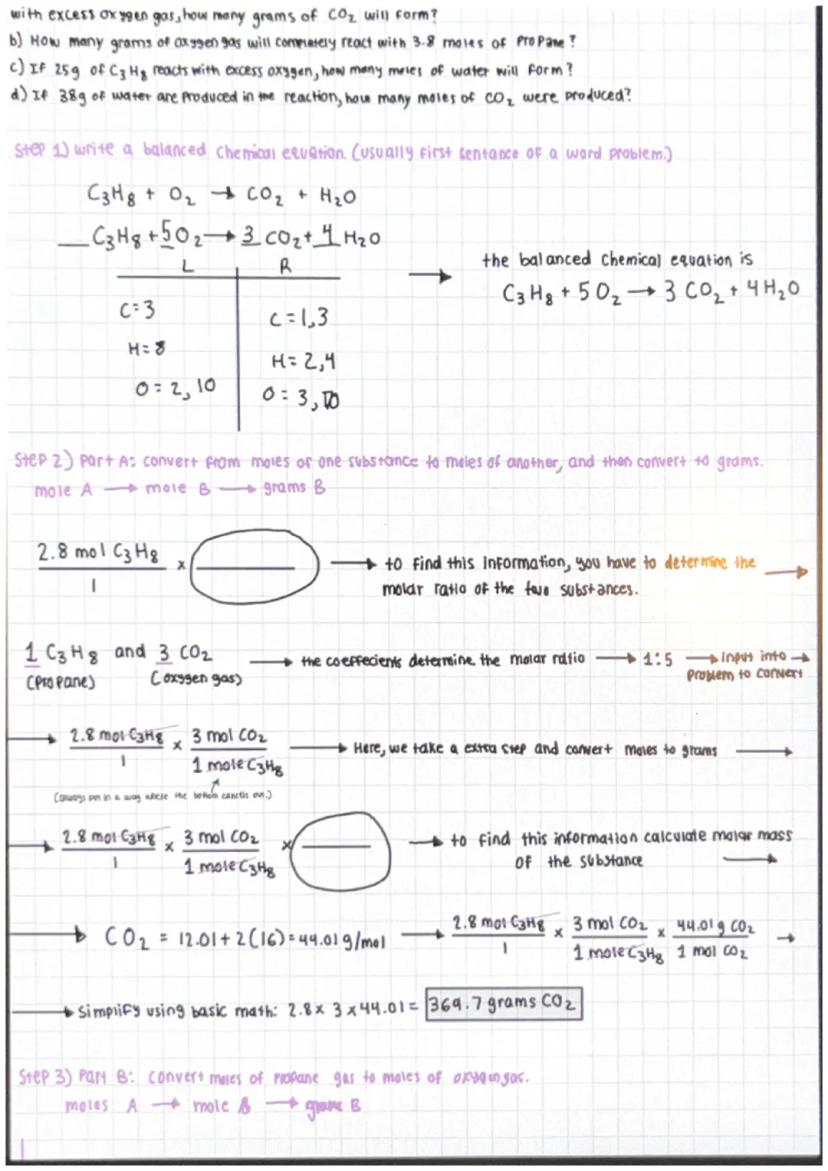 with excess oxygen gas, how many grams of CO₂ will form?
b) How many grams of oxygen gas will completely react with 3.8 moles of propane?
c) If 25g of C₃H₈ reacts with excess oxygen, how many moles of water will form?
d) If 38g of water are produced in the reaction, how many moles of CO₂ were produced?
Step 1) write a balanced chemical equation. (usually first sentance of a word problem.)
C₃H₈ + O₂ → CO₂ + H₂O
__C₃H₈ + 5O₂ → 3 CO₂ + 4 H₂O
L R
the balanced chemical equation is
→ C₃H₈ + 5O₂ → 3 CO₂ + 4H₂O
C=3 C=1,3
H=8 H=2,4
O=2,10 O=3,10
Step 2) Part A: convert from moles of one substance to moles of another, and then convert to grams.
mole A → mole B → grams B
2.8 mol C₃H₈ / 1 × ___ → to find this information, you have to determine the →
molar ratio of the two substances.
1 C₃H₈ and 3 CO₂ → the coeffecients determine the molar ratio → 1:5 → input into →
(propane) (oxygen gas) problem to convert
→ 2.8 mol C₃H₈ / 1 × 3 mol CO₂ / 1 mole C₃H₈ → Here, we take a extra step and convert moles to grams →
(always put in a way where the bottom cancels out.)
→ 2.8 mol C₃H₈ / 1 × 3 mol CO₂ / 1 mole C₃H₈ × ___ → to find this information calculate molar mass
of the substance →
→ CO₂ = 12.01+2(16)=44.01g/mol → 2.8 mol C₃H₈ / 1 × 3 mol CO₂ / 1 mole C₃H₈ × 44.01g CO₂ / 1 mol CO₂ →
→ Simplify using basic math: 2.8 × 3 × 44.01 = 369.7 grams CO₂
Step 3) Part B: convert moles of propane gas to moles of oxygen gas.
moles A → mole B → grams B